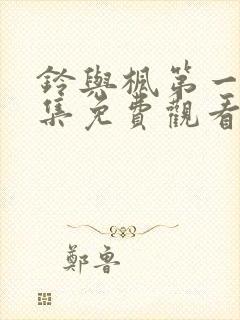 鈴與楓第一
集免費觀看
鄭魯